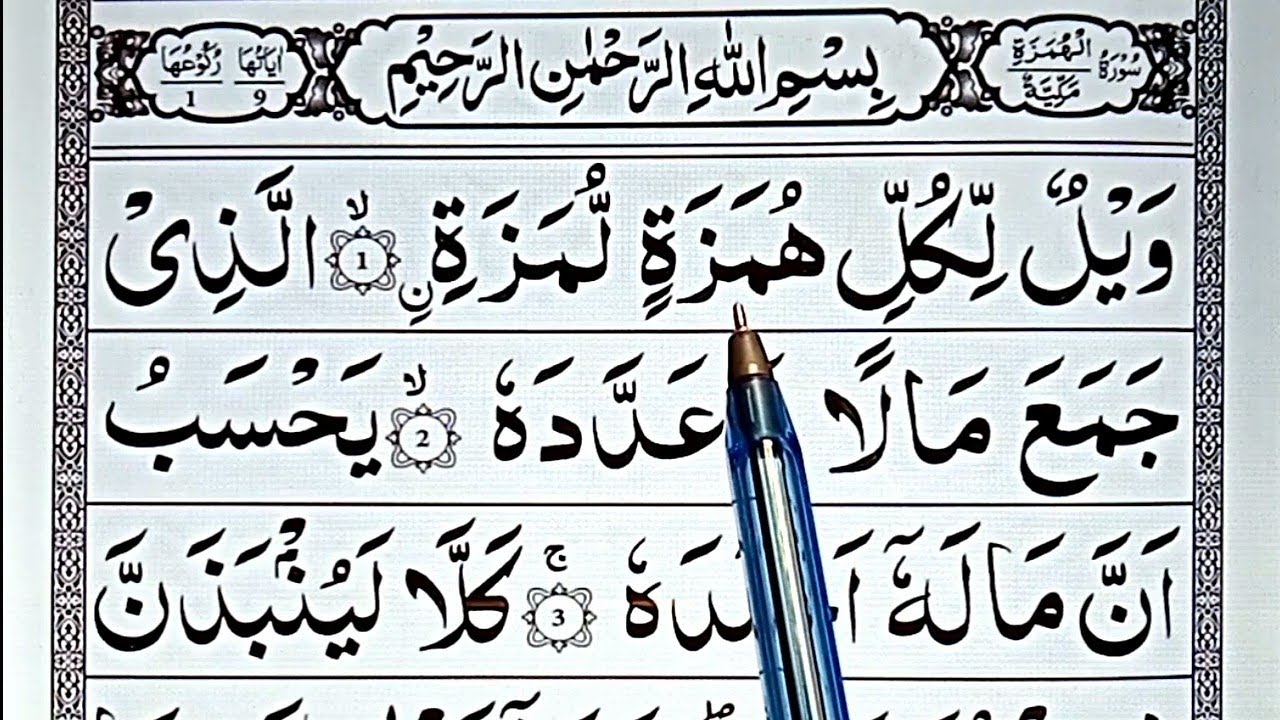 سُوْرَةُ الْهُمَزَةِ مَكِّيَّةٌ
بِسْمِ اللّٰهِ الرَّحْمٰنِ الرَّحِيْمِ
اٰيَاتُهَا 9 رُكُوْعُهَا 1
وَيْلٌ لِّكُلِّ هُمَزَةٍ لُّمَزَةِ ۙ نِ 1 الَّذِىْ
جَمَعَ مَالًا عَدَّدَهٗ ۙ 2 يَحْسَبُ
اَنَّ مَالَهٗٓ ۚ 3 كَلَّا لَيُنْۢبَذَنَّ